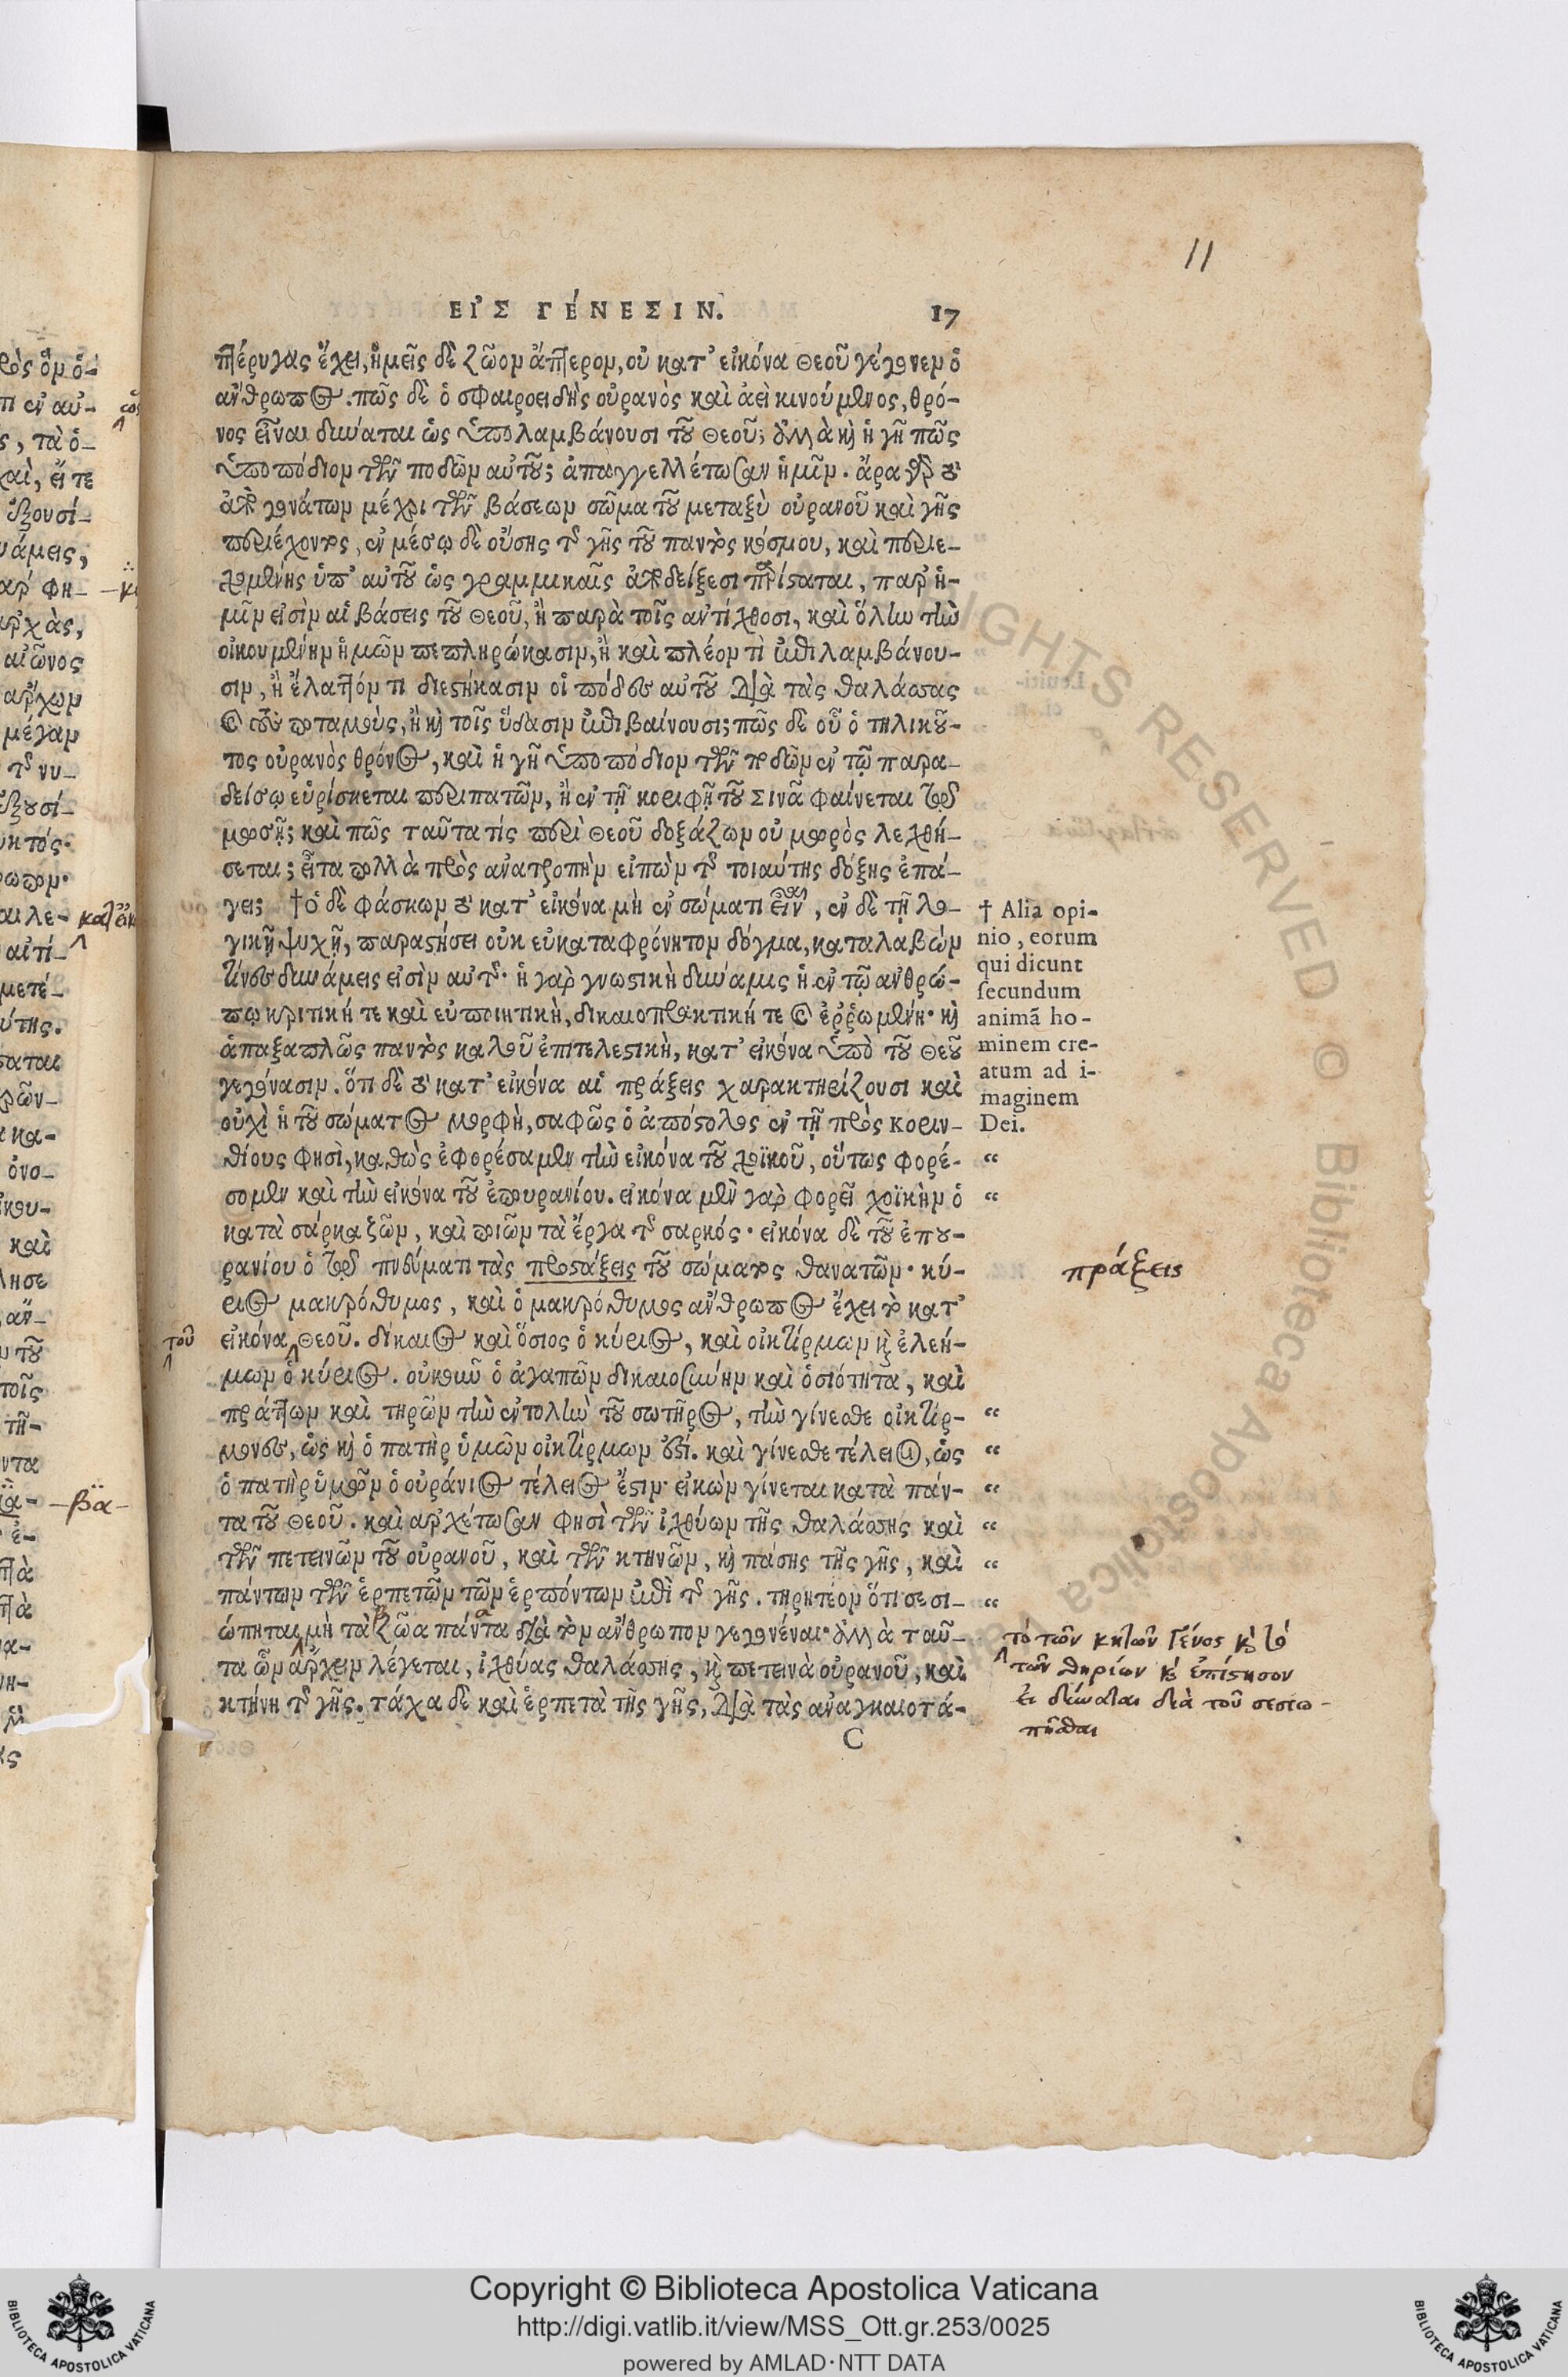 11
ΕΙ᾿Σ ΓΈΝΕΣΙΝ. 17
πτέρυγας ἔχει, ἡμεῖς δὲ ζῶον ἄπτερον, οὐ κατ᾿ εἰκόνα Θεοῦ γέγονεν ὁ
ἄνθρωπος. πῶς δὲ ὁ σφαιροειδὴς οὐρανὸς καὶ ἀεὶ κινούμενος, θρό-
νος εἶναι δύναται ὡς ὑπολαμβάνουσι τοῦ Θεοῦ; ἀλλὰ καὶ ἡ γῆ πῶς
ὑποπόδιον τῶν ποδῶν αὐτοῦ; ἀπαγγελλέτωσαν ἡμῖν. ἄρα γὰρ τοῦ
ἀπὸ γονάτων μέχρι τῶν βάσεων σῶμα τοῦ μεταξὺ οὐρανοῦ καὶ γῆς
περιέχοντος, ἐν μέσῳ δὲ οὔσης τῆς γῆς τοῦ παντὸς κόσμου, καὶ περιε-
χομένης ὑπ᾿ αὐτοῦ ὡς γραμμικαῖς ἀποδείξεσι παρίσταται, παρ᾿ ἡ-
μῖν εἰσὶν αἱ βάσεις τοῦ Θεοῦ, ἢ παρὰ τοῖς ἀντίχθοσι, καὶ ὅλην τὴν
οἰκουμένην ἡμῶν πεπληρώκασιν, ἢ καὶ πλέον τὶ ἐπιλαμβάνου-
σιν, ἢ ἔλαττόν τι διεστήκασιν οἱ πόδες αὐτοῦ διὰ τὰς θαλάσσας
καὶ τοὺς ποταμοὺς, ἢ καὶ τοῖς ὕδασιν ἐπιβαίνουσι; πῶς δὲ οὗ ὁ τηλικοῦ-
τος οὐρανὸς θρόνος, καὶ ἡ γῆ ὑποπόδιον τῶν ποδῶν ἐν τῷ παρα-
δείσῳ εὑρίσκεται περιπατῶν, ἢ ἐν τῇ κορυφῇ τοῦ Σινᾶ φαίνεται τῷ
μωσῇ; καὶ πῶς ταῦτα τίς περὶ Θεοῦ δοξάζων οὐ μωρὸς λεχθή-
σεται; εἶτα πολλὰ πρὸς ἀνατροπὴν εἰπὼν τῆς τοιαύτης δόξης ἐπά-
γει; † ὁ δὲ φάσκων τὸ κατ᾿ εἰκόνα μὴ ἐν σώματι εἶναι, ἐν δὲ τῇ λο-
γικῇ ψυχῇ, παραστήσει οὐκ εὐκαταφρόνητον δόγμα, καταλαβὼν
τίνες δυνάμεις εἰσὶν αὐτῆς· ἡ γὰρ γνωστικὴ δύναμις ἡ ἐν τῷ ἀνθρώ-
πῳ κριτική τε καὶ εὐποιητικὴ, δικαιοπρακτική τε καὶ ἐῤῥωμένη· καὶ
ἁπαξαπλῶς παντὸς καλοῦ ἐπιτελεστικὴ, κατ᾿ εἰκόνα ὑπὸ τοῦ Θεοῦ
γεγόνασιν. ὅτι δὲ τὸ κατ᾿ εἰκόνα αἱ πράξεις χαρακτηρίζουσι καὶ
οὐχὶ ἡ τοῦ σώματος μορφὴ, σαφῶς ὁ ἀπόστολος ἐν τῇ πρὸς Κοριν-
θίους φησὶ, καθὼς ἐφορέσαμεν τὴν εἰκόνα τοῦ χοϊκοῦ, οὕτως φορέ- “
σομεν καὶ τὴν εἰκόνα τοῦ ἐπουρανίου. εἰκόνα μὲν γὰρ φορεῖ χοϊκὴν ὁ “
κατὰ σάρκα ζῶν, καὶ ποιῶν τὰ ἔργα τῆς σαρκός· εἰκόνα δὲ τοῦ ἐπου-
ρανίου ὁ τῷ πνεύματι τὰς προστάξεις τοῦ σώματος θανατῶν· κύ-
ριος μακρόθυμος, καὶ ὁ μακρόθυμος ἄνθρωπος ἔχει τὸ κατ᾿
εἰκόνα Θεοῦ. δίκαιος καὶ ὅσιος ὁ κύριος, καὶ οἰκτίρμων καὶ ἐλεή-
μων ὁ κύριος. οὐκοῦν ὁ ἀγαπῶν δικαιοσύνην καὶ ὁσιότητα, καὶ
πράττων καὶ τηρῶν τὴν ἐντολὴν τοῦ σωτῆρος, τὴν γίνεσθε οἰκτίρ- “
μονες, ὡς καὶ ὁ πατὴρ ὑμῶν οἰκτίρμων ἐστί. καὶ γίνεσθε τέλειοι, ὡς “
ὁ πατὴρ ὑμῶν ὁ οὐράνιος τέλειος ἔστιν· εἰκὼν γίνεται κατὰ πάν- “
τα τοῦ Θεοῦ. καὶ ἀρχέτωσαν φησὶ τῶν ἰχθύων τῆς θαλάσσης καὶ “
τῶν πετεινῶν τοῦ οὐρανοῦ, καὶ τῶν κτηνῶν, καὶ πάσης τῆς γῆς, καὶ “
πάντων τῶν ἑρπετῶν τῶν ἑρπόντων ἐπὶ τῆς γῆς. τηρητέον ὅτι σεσι- “
ώπηται, μὴ τὰ ζῶα πάντα διὰ τὸν ἄνθρωπον γεγονέναι· ἀλλὰ ταῦ-
τα ὧν ἄρχειν λέγεται, ἰχθύας θαλάσσης, καὶ πετεινὰ οὐρανοῦ, καὶ
κτήνη τῆς γῆς. τάχα δὲ καὶ ἑρπετὰ τῆς γῆς, διὰ τὰς ἀναγκαιοτά-
C
† Alia opi-
nio, eorum
qui dicunt
secundum
animã ho-
minem cre-
atum ad i-
maginem
Dei.
πράξεις
τοῦ
τὸ τῶν κητῶν γένος καὶ τὸ
τῶν θηρίων καὶ ἐπίστησον
εἰ δύναται διὰ τοῦ σεσιω-
πῆσθαι
-βϊα-
Copyright © Biblioteca Apostolica Vaticana
http://digi.vatlib.it/view/MSS_Ott.gr.253/0025
powered by AMLAD·NTT DATA
BIBLIOTECA APOSTOLICA VATICANA
BIBLIOTECA APOSTOLICA VATICANA